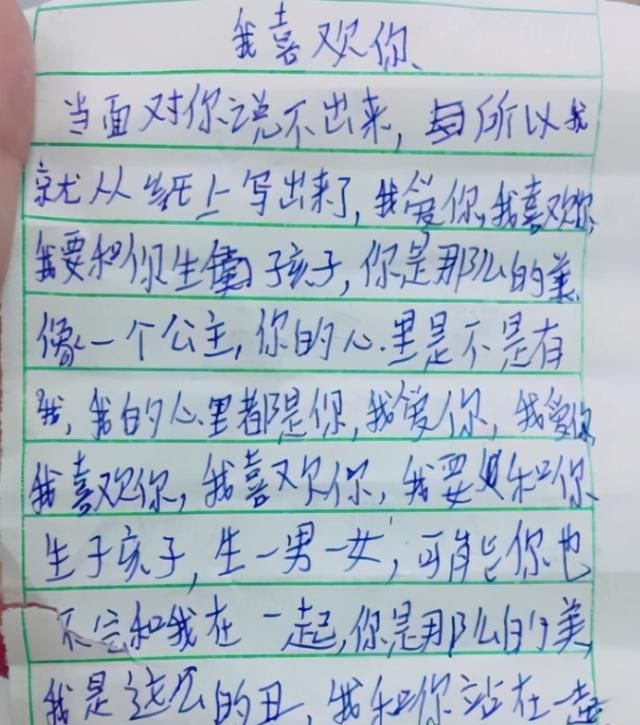 我喜欢你
当面对你说不出来，所以我
就从纸上写出来了，我爱你，我喜欢你，
我要和你生孩子，你是那么的美
像一个公主，你的心里是不是有
我，我的心里都是你，我爱你，我爱你
我喜欢你，我喜欢你，我要和你
生子孩子，生一男一女，可能你也
不会和我在一起，你是那么的美，
我是这么的丑，我和你站在一起